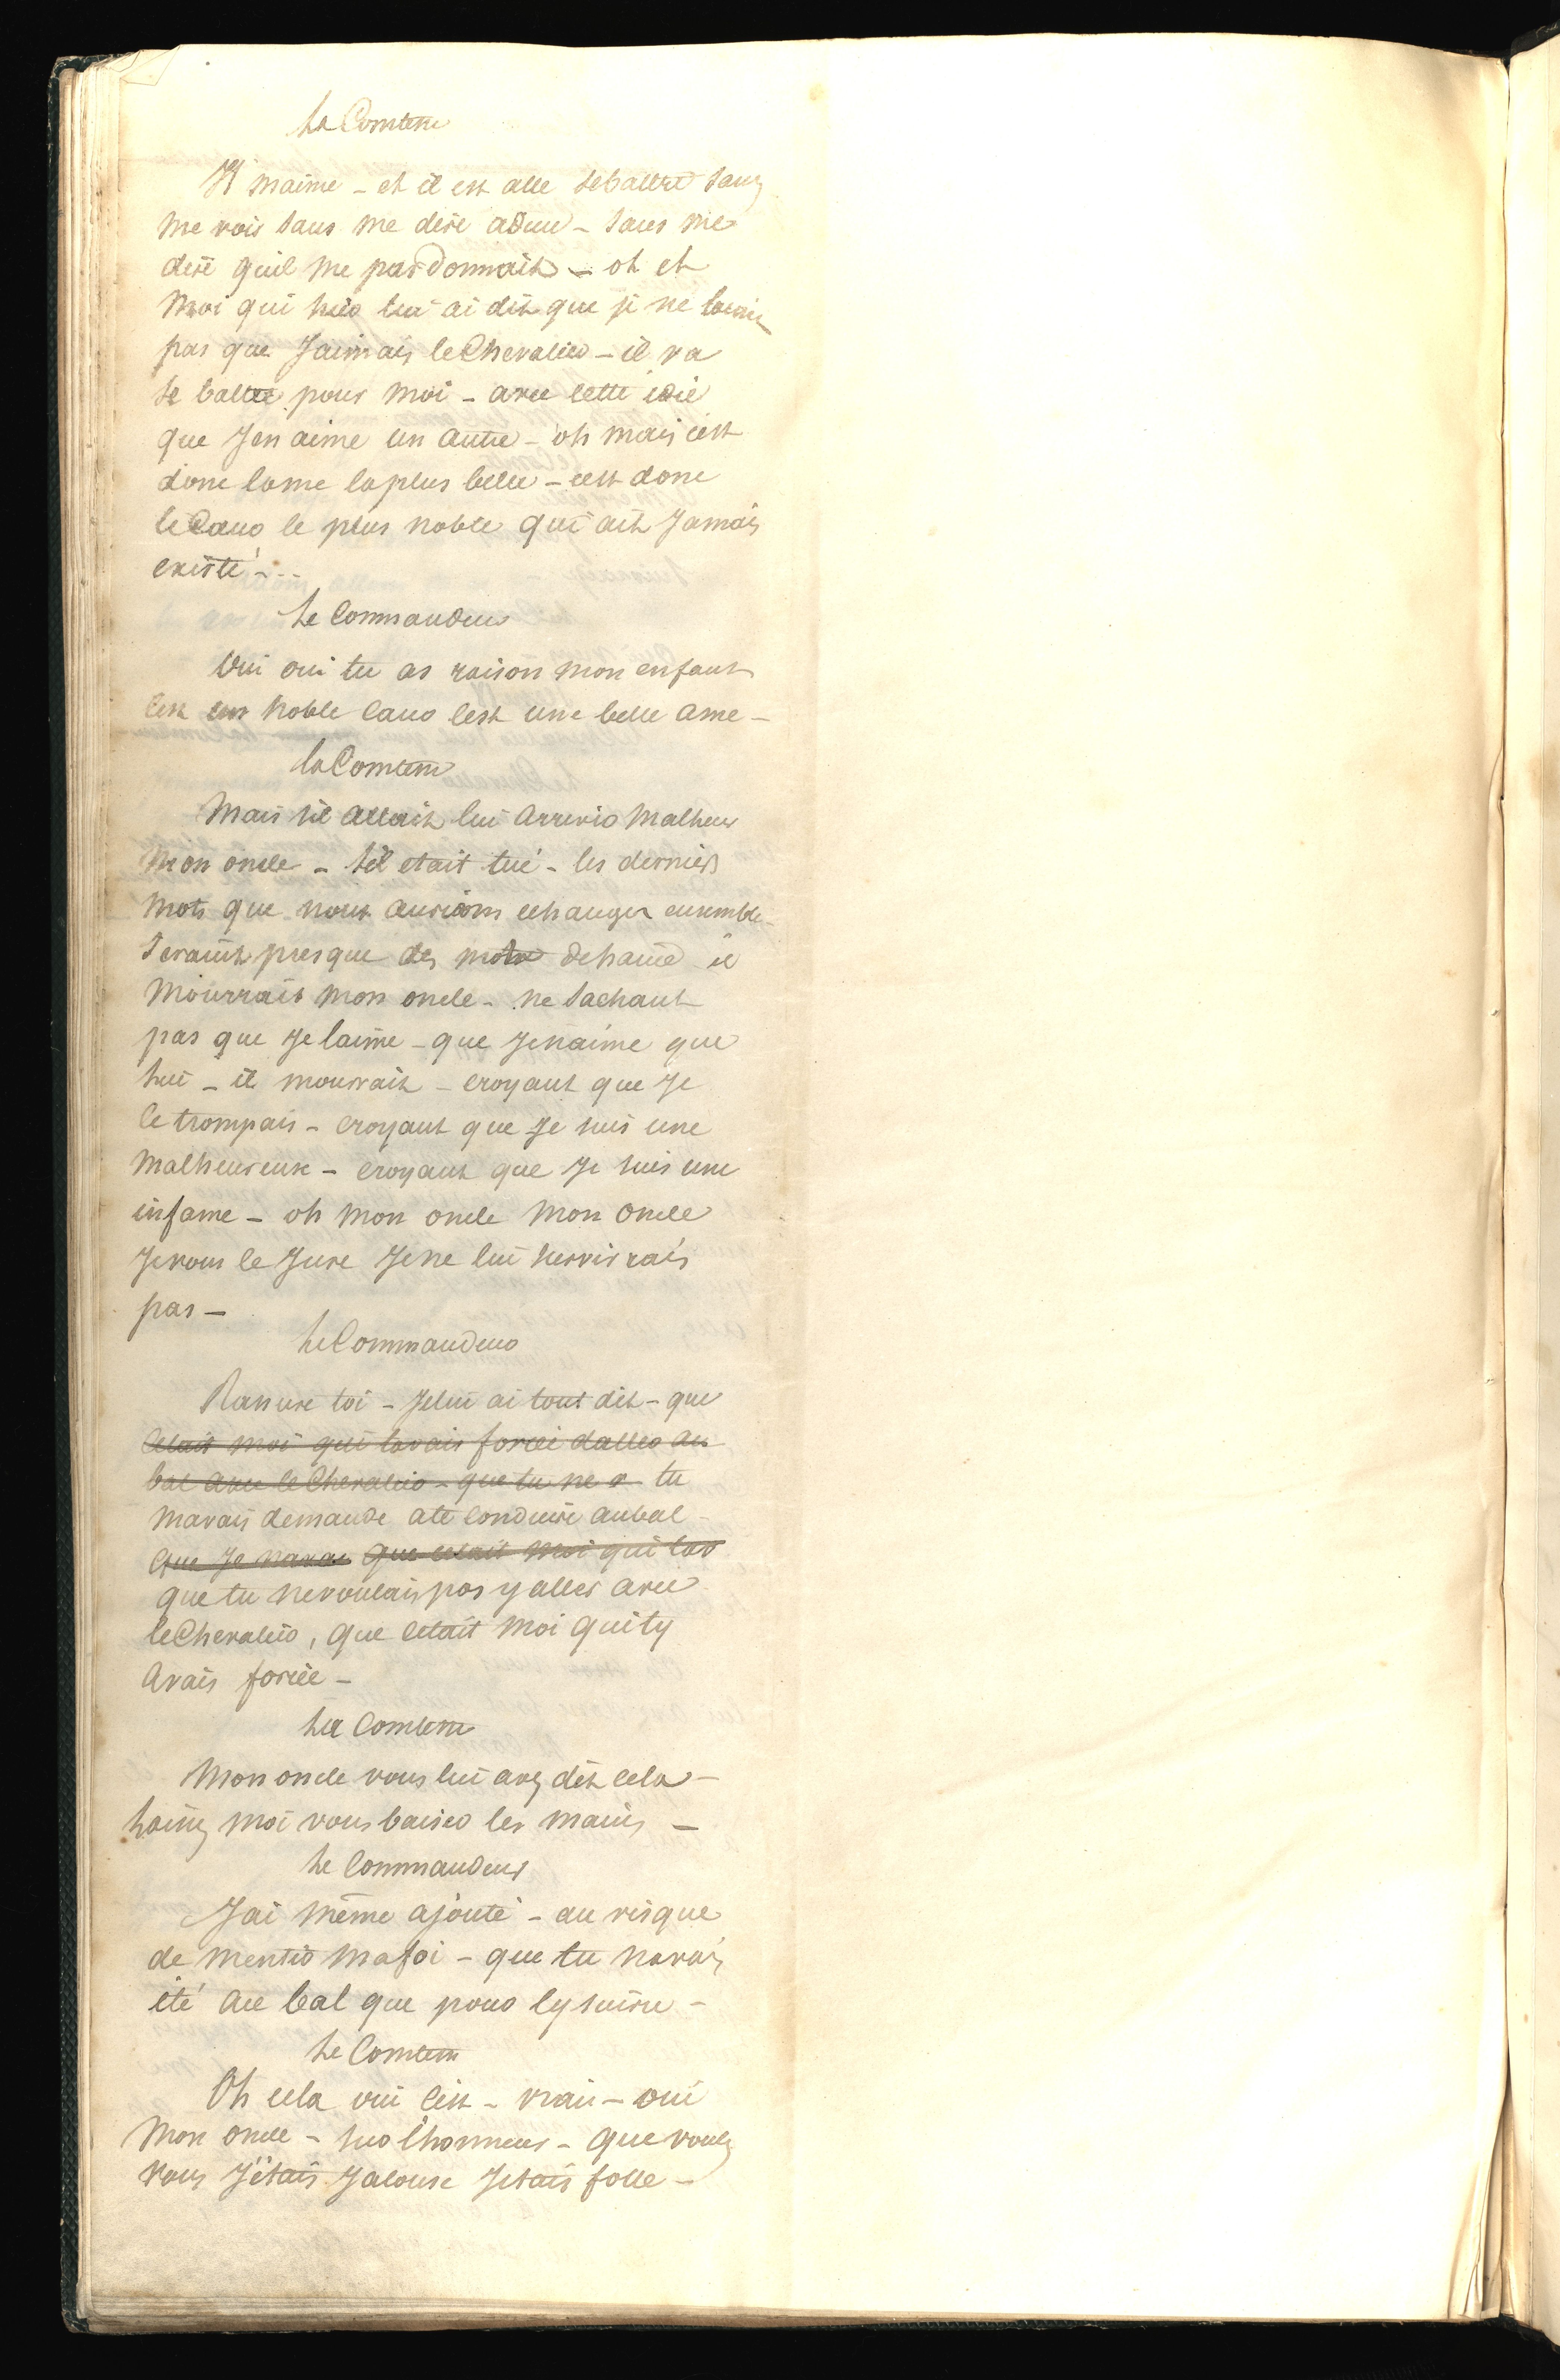 La Comtesse
Il maime – et il est alle se battre sans
me voir sans me dire adieu – sans me
dire quil me pardonnait – oh et
moi qui lui ai dit que je ne laimais
pas que Jaimais le Chevalier – il va
se battre pour moi – avec cette idée
que Jen aime un autre – oh mais cest
donc lame la plus belle – cest donc
le Cœur le plus noble qui ait Jamais
existé – ..
Le Commandeur
Oui oui tu as raison mon enfant
Cest un noble Cœur Cest une belle ame –
La Comtesse
Mais sil allait lui arriver malheur
mon oncle – sil etait tué – les derniers
mots que nous aurions echanger ensemble
Seraient presque des mots de haine il
mourrait mon oncle – ne sachant
pas que Je laime – que Je naime que
lui – il mourrait – croyant que Je
le trompais – croyant que Je suis une
malheureuse – croyant que Je suis une
infame – oh mon oncle mon oncle
Je vous le Jure Je ne lui survivrais
pas –
Le Commandeur
Rassure toi – Je lui ai tout dit – que
Cetait moi qui tavais forcée daller au
bal avec le Chevalier – que tu ne v tu
mavais demandé a te Conduire au bal –
que Je navais que cetait moi qui tav
que tu ne voulais pas y aller avec
le Chevalier, que Cetait moi qui ty
avais forcée –
La Comtesse
Mon oncle vous lui avez dit cela –
laissez moi vous baiser les mains –
Le Commandeur
Jai même ajouté – au risque
de mentir ma foi – que tu navais
été au bal que pour ly suivre –
La Comtesse
Oh cela oui Cest – vrai – oui
Mon oncle – sur lhonneur – que voulez
vous J'étais Jalouse Jetais folle –